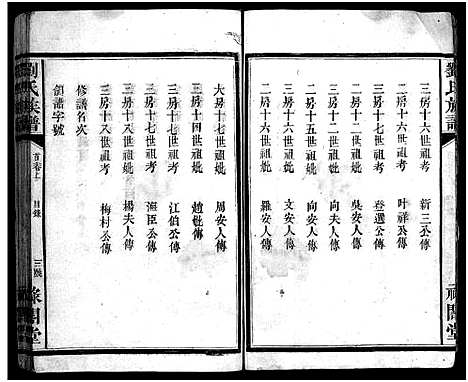 劉氏族譜
三房十六世祖考 新三公傳
二房十六世祖考 叶祥公傳
二房十六世祖考 登選公傳
二房十六世祖妣 吳安人傳
二房十六世祖妣 向夫人傳
二房十五世祖妣 向安人傳
二房十六世祖妣 羅安人傳
祿閣堂
大房十七世祖妣 周安人傳
三房十四世祖妣 趙妣傳
三房十七世祖考 江伯公傳
三房十七世祖考 公傳
三房十八世祖妣 楊夫人傳
三房十八世祖考 梅村公傳
修譜名次
領譜字號
劉氏族譜
首卷上
目錄
三
祿閣堂